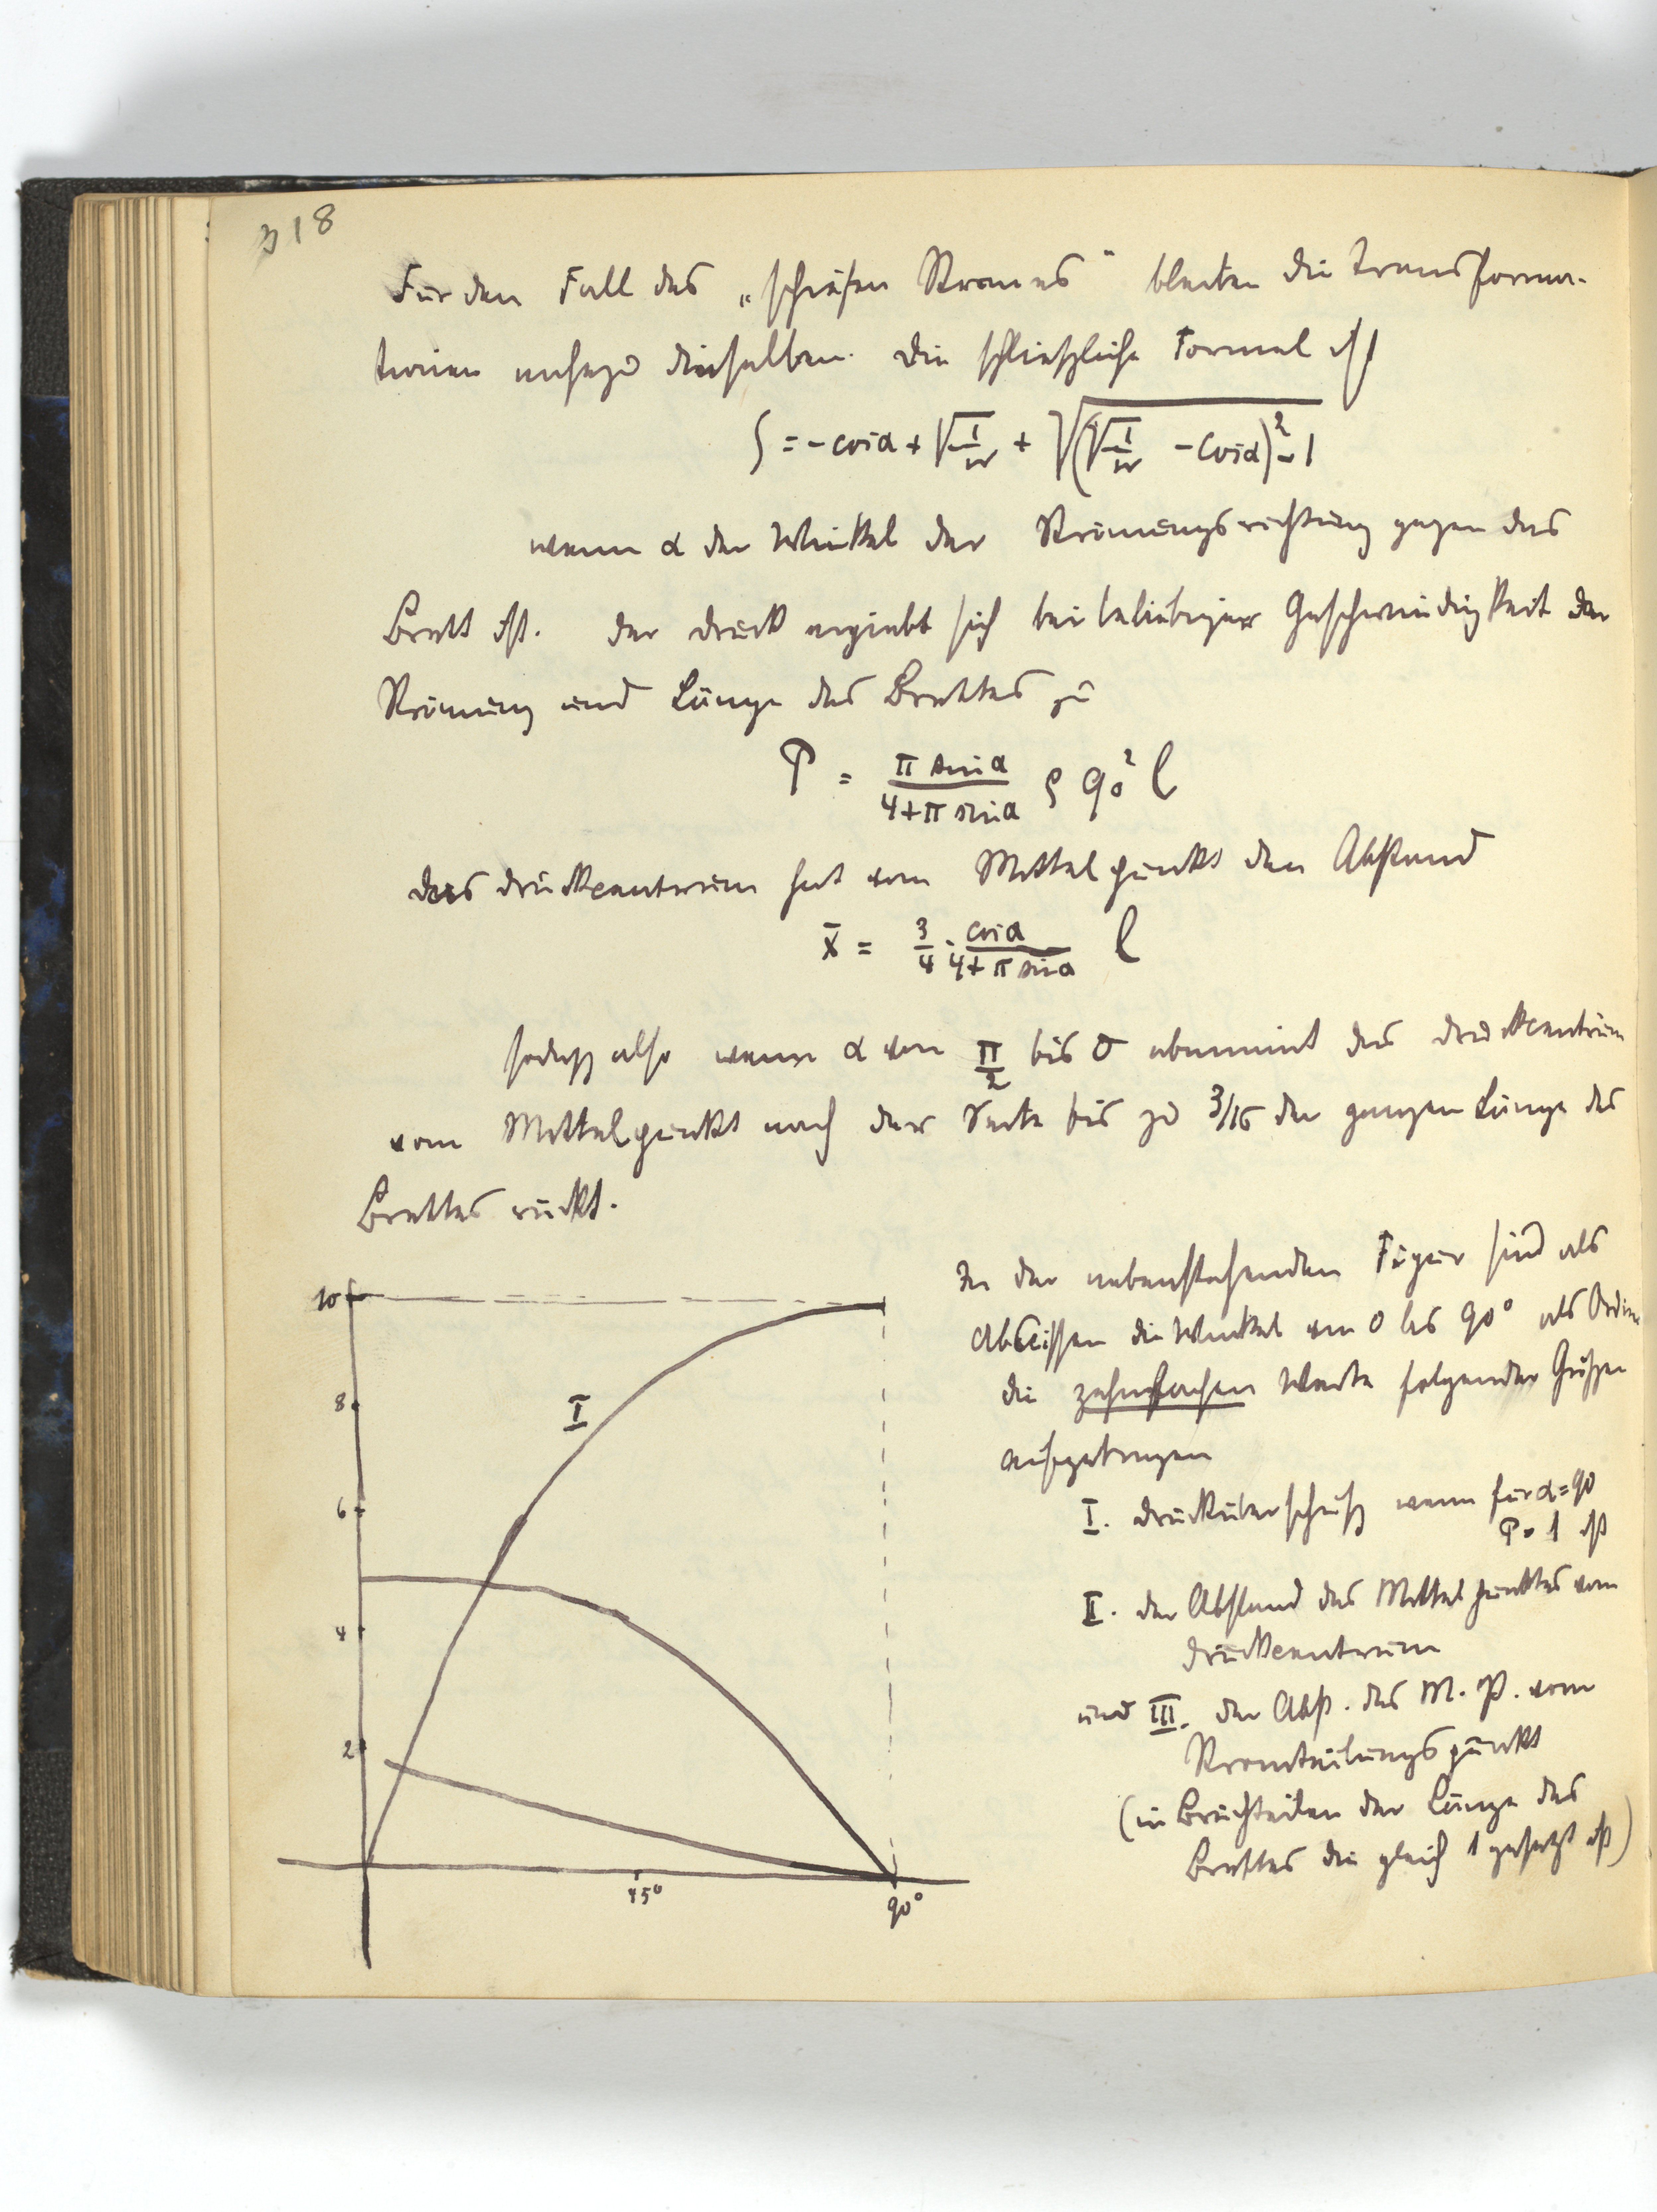 318
Für den Fall des „schiefen Stromes" bleiben die Transforma-
tionen nahezu dieselben. Die schließliche Formel ist
ζ = - cos α + √1/w + √(√1/w - cos α)² - 1
wenn α der Winkel der Strömungsrichtung gegen das
Brett ist. Der Druck ergiebt sich bei beliebiger Geschwindigkeit der
Strömung und Länge des Brettes zu
P = π sin α / 4+π sin α ρ q₀² l
Das Druckcentrum hat vom Mittelpunkt den Abstand
x̄ = 3/4 · cos α / 4+π sin α l
sodaß also wenn α von π/2 bis 0 abnimmt das Druckcentrum
vom Mittelpunkt nach der Seite bis zu 3/16 der ganzen Länge des
Brettes rückt.
In der nebenstehenden Figur sind als
Abscissen die Winkel von 0 bis 90° als Ordin
die zehnfachen Werte folgender Größen
aufgetragen
I. Drucküberschuß wenn für α=90
P=1 ist
II. der Abstand des Mittelpunktes vom
Druckcentrum
und III. der Abst. des M.P. vom
Stromteilungspunkt
(in Bruchteilen der Länge des
Brettes die gleich 1 gesetzt ist)
10
8
6
4
2
I
45°
90°